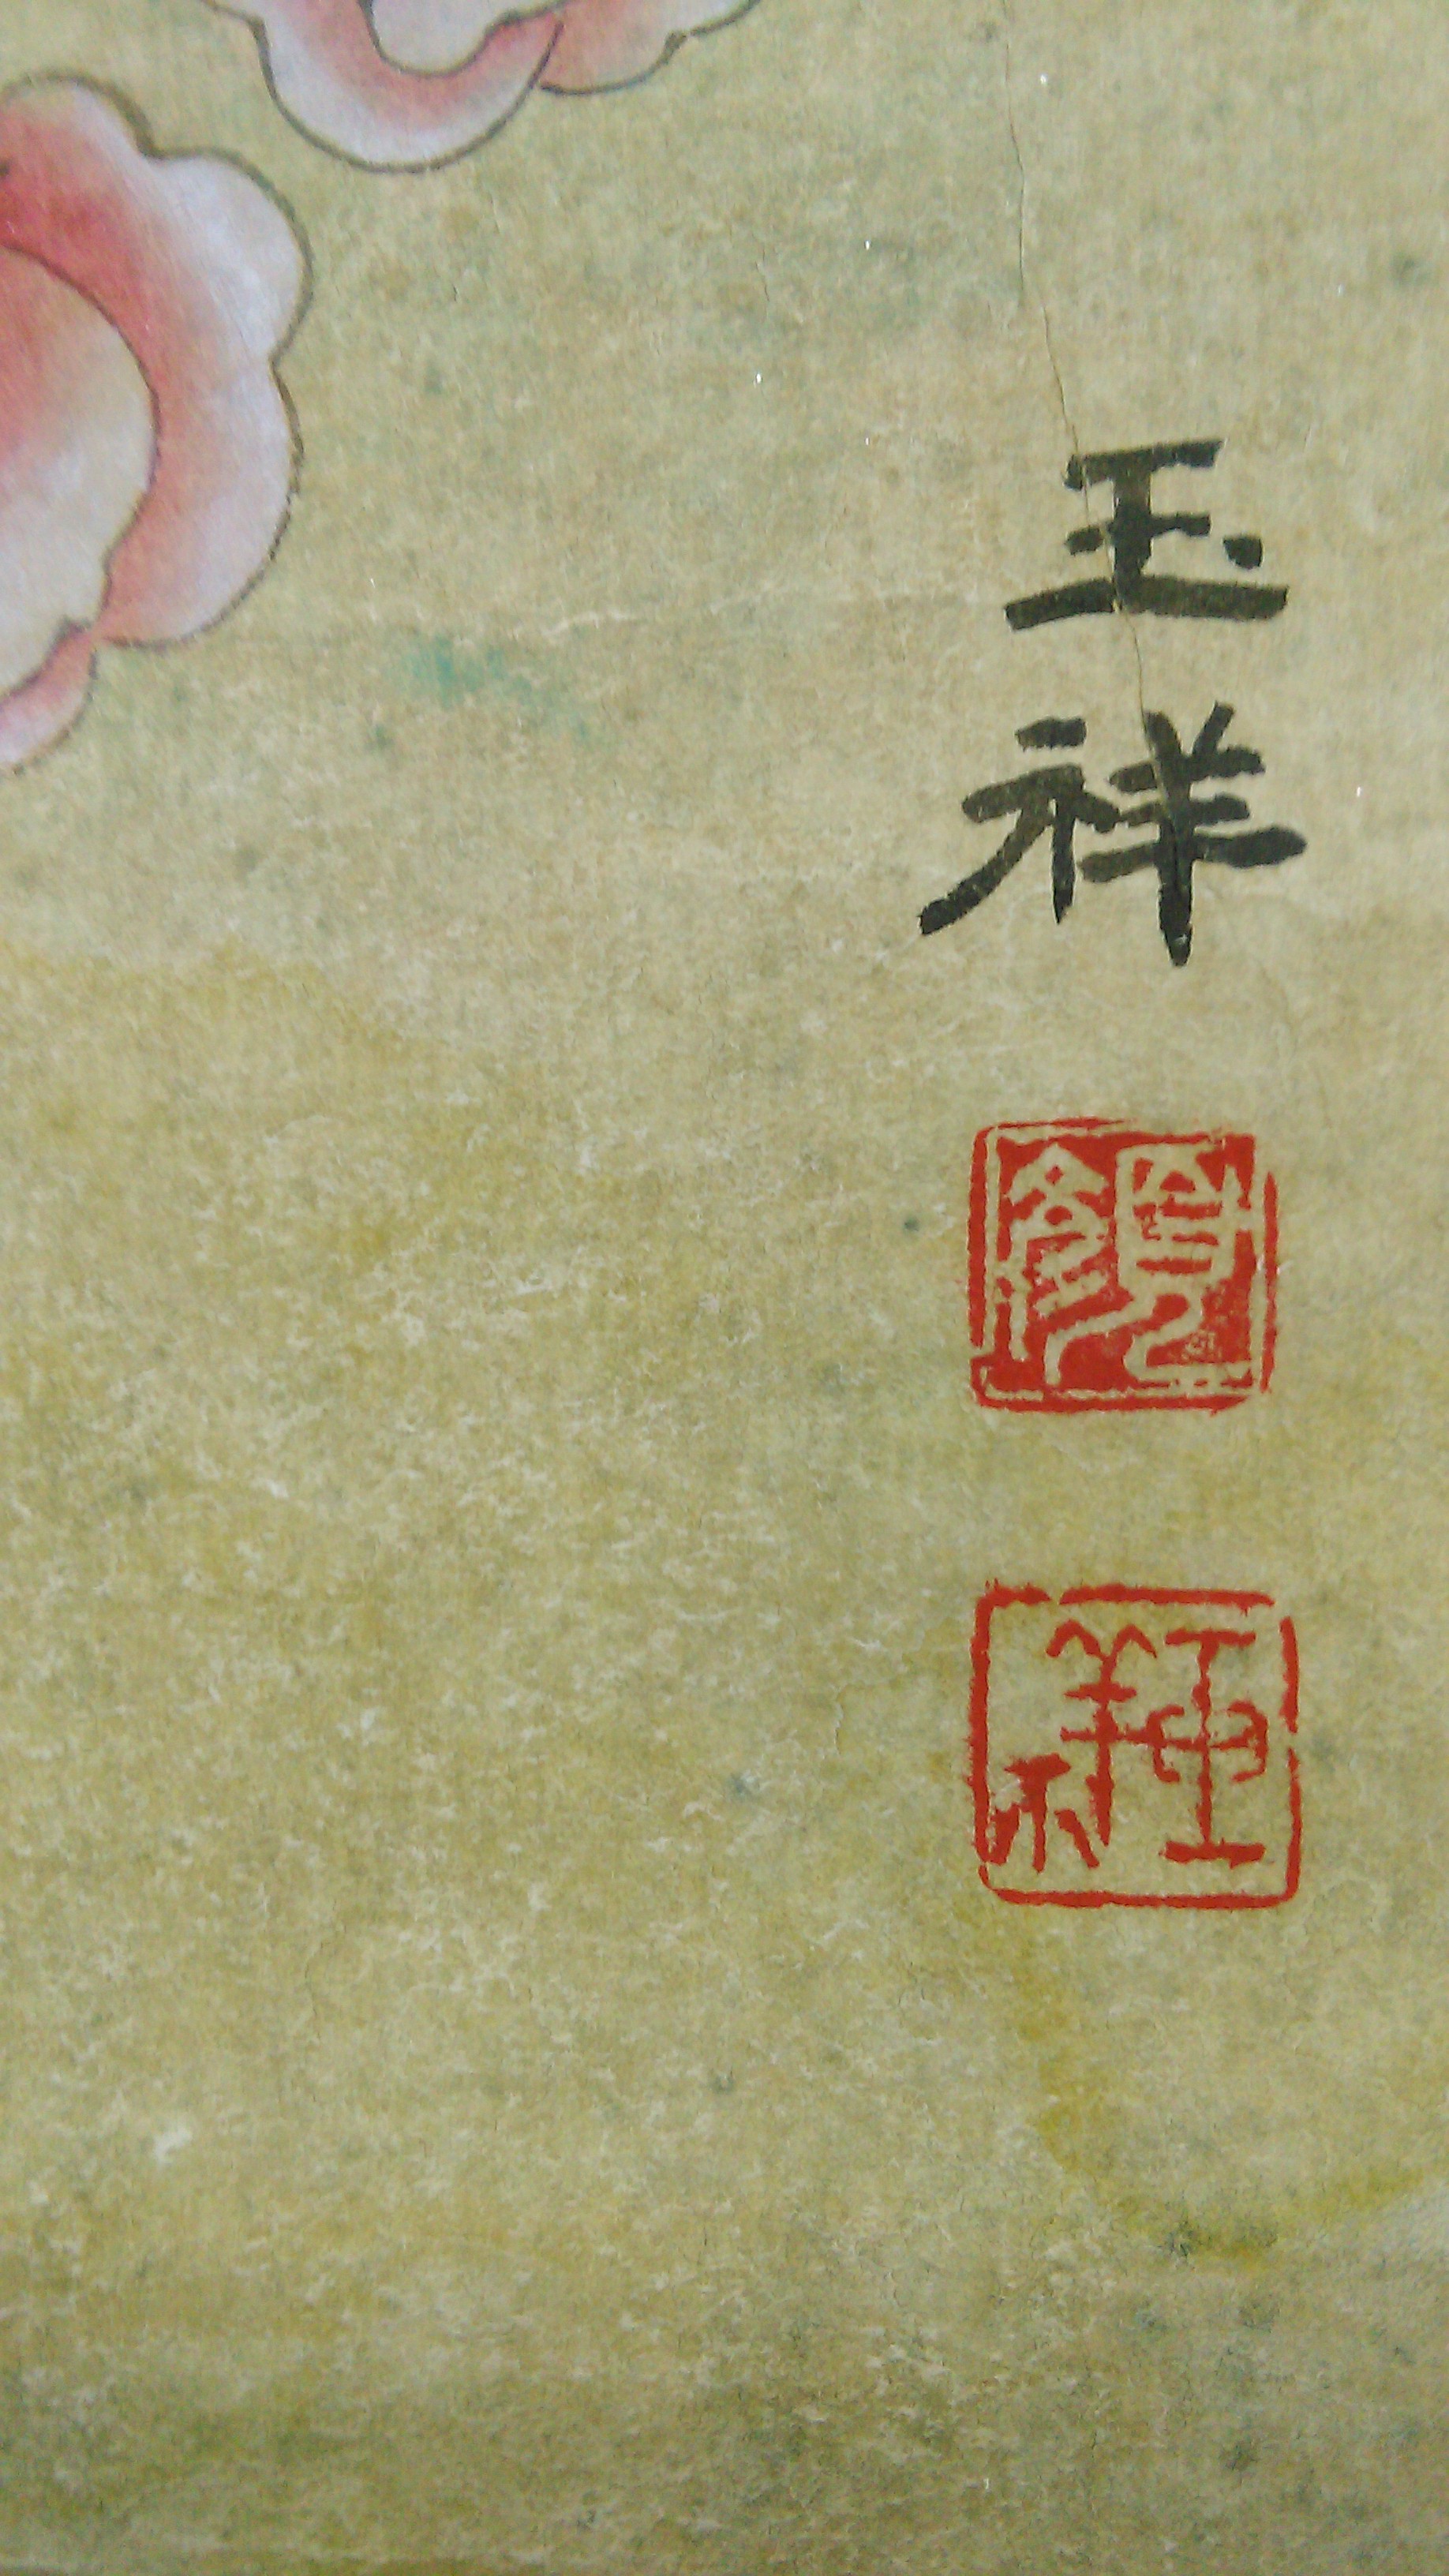 玉祥
玉祥